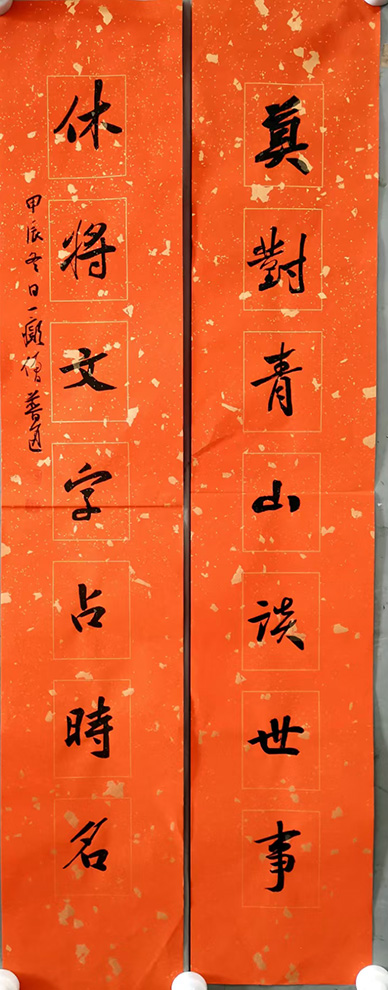 莫對青山談世事
休將文字占時名
甲辰冬日一癡僧普